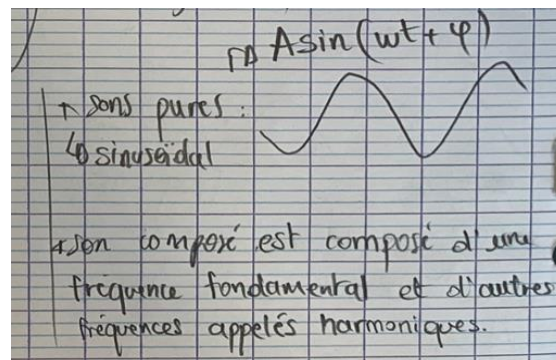 ↳ Asin(wt + φ)
↑ sons pures :
↳ sinuseïdal
+ son composé est composé d'une
fréquence fondamental et d'autres
fréquences appelés harmoniques.